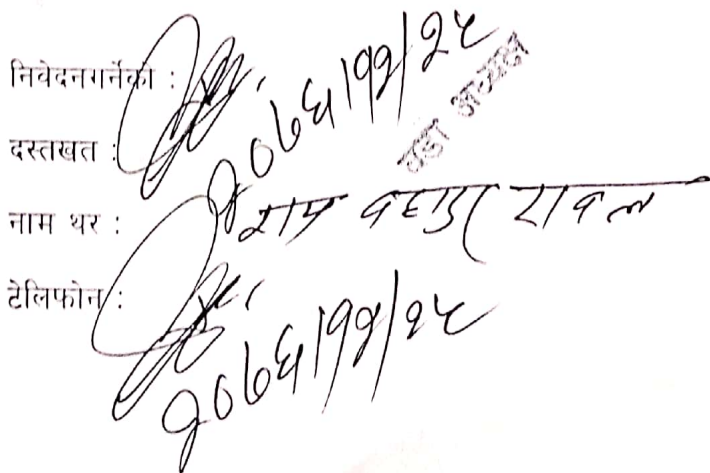 निवेदनगर्नेको :
२०७६।१२।२५
वडा अध्यक्ष
दस्तखत :
नाम थर : राम बहादुर रावल
टेलिफोन :
२०७६।१२।२५